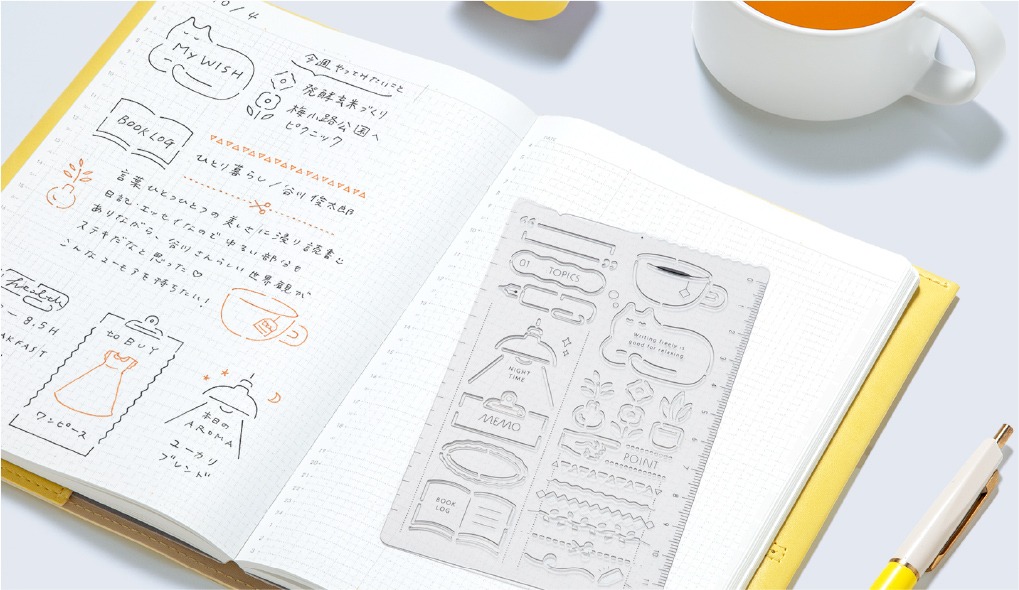 10/4
MY WISH
今週やってみたいこと
発酵玄米づくり
梅小路公園へ
ピクニック
BOOK LOG
ひとり暮らし/谷川俊太郎
言葉ひとつひとつの美しさに浸り読書。
日記、エッセイなのでゆるい部分も
ありながら、谷川さんらしい世界観が
ステキだなと思った♡
こんなユーモアを持ちたい!
health
8.5H
to BUY
ワンピース
本日の
AROMA
ユーカリ
ブレンド
01 TOPICS
Writing freely is
good for relaxing.
NIGHT
TIME
MEMO
POINT
BOOK
LOG
DATE